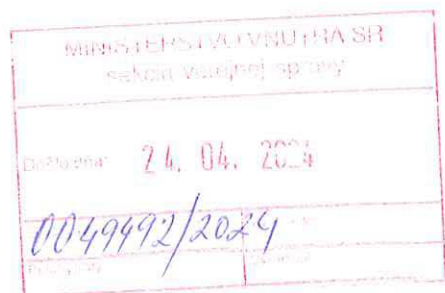 MINISTERSTVO VNÚTRA SR
sekcia verejnej správy
24. 04. 2024
0049492/2024